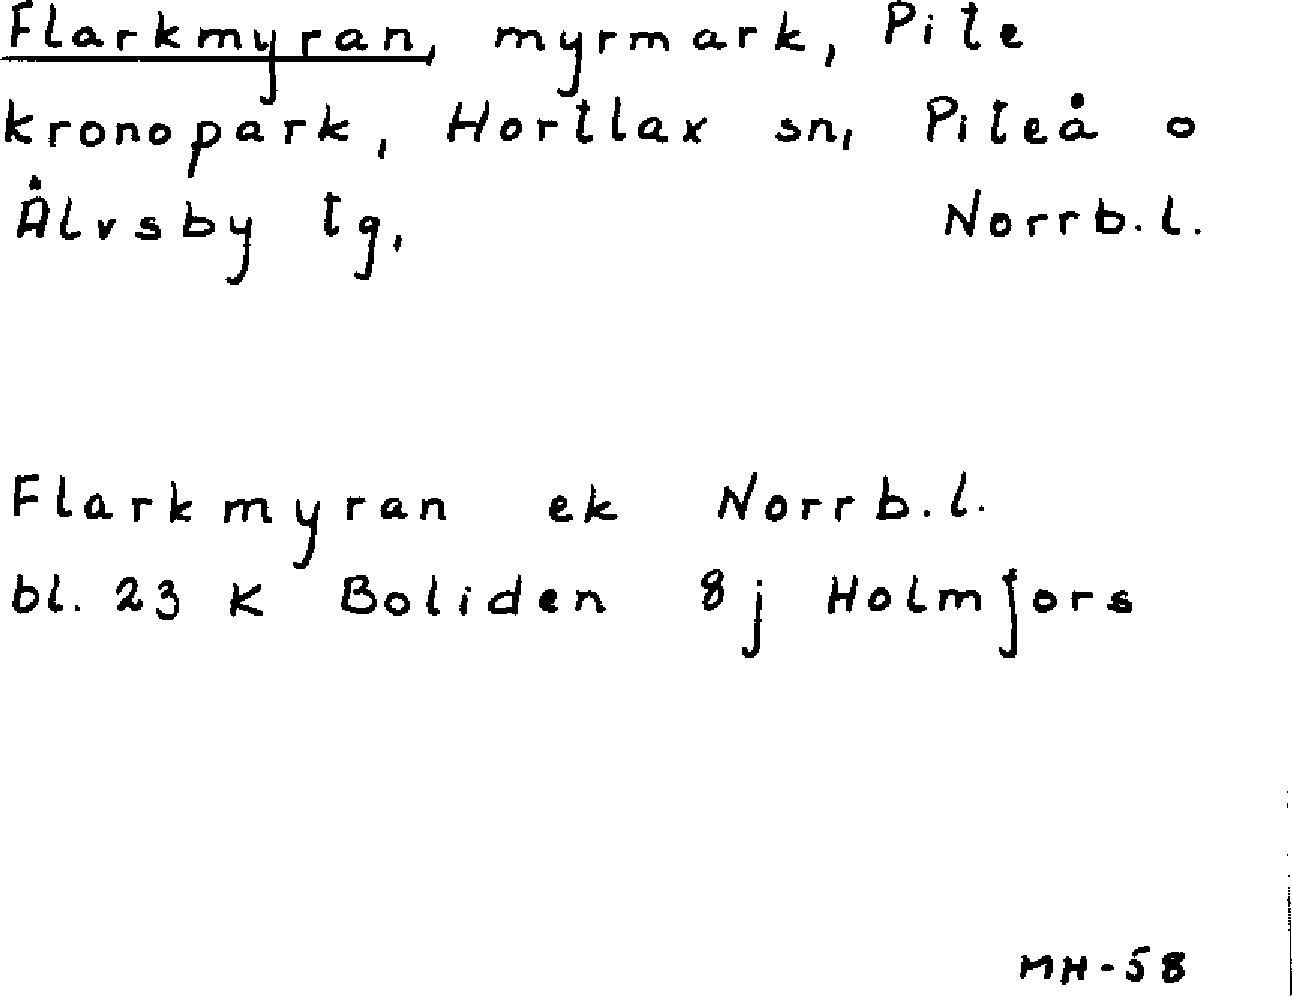 Flarkmyran, myrmark, Pite
kronopark, Hortlax sn, Piteå o
Älvsby tg, Norrb.l.
Flarkmyran ek Norrb.l.
bl. 23 K Boliden 8j Holmfors
MH-58